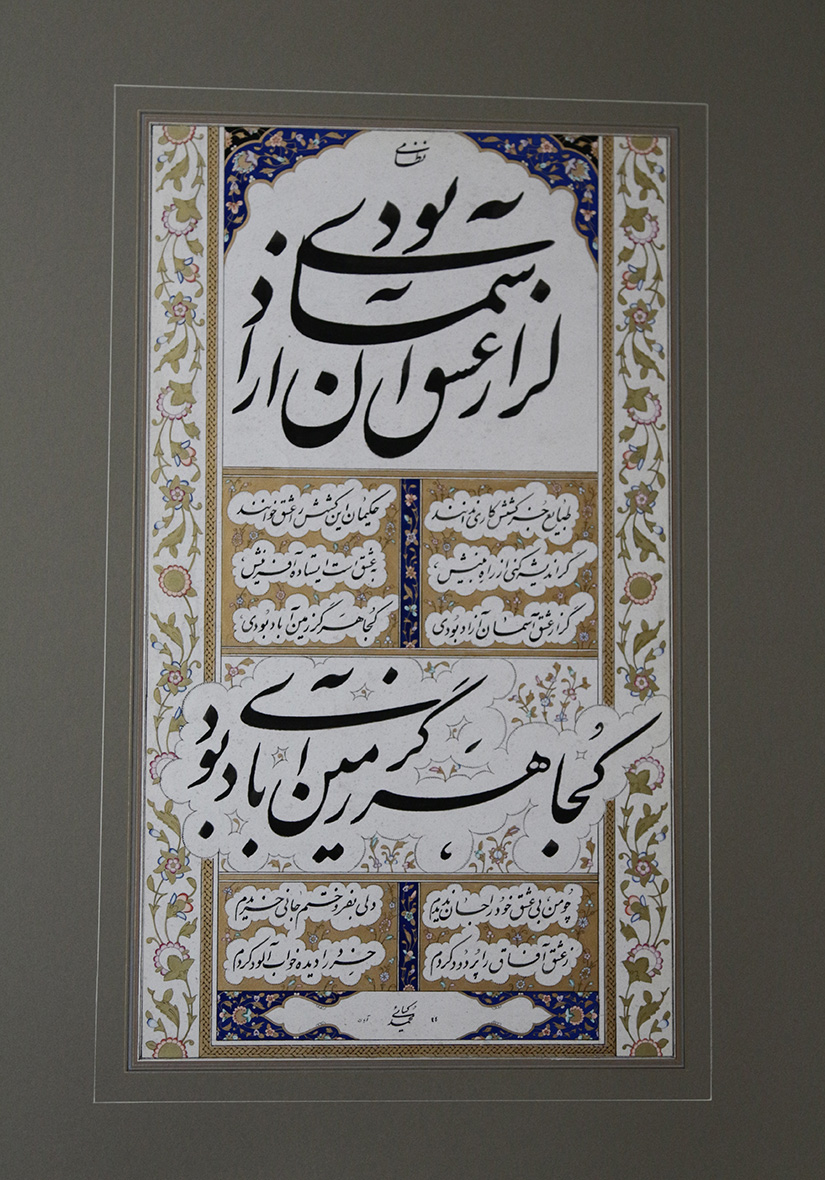 نظامی
گر از عشق آسمان آزاد بودی
طبایع جز کشش کاری ندانند حکیمان این کشش را عشق خوانند
گر اندیشه کنی از راه بینش به عشق است ایستاده آفرینش
گر از عشق آسمان آزاد بودی کجا هرگز زمین آباد بودی
کجا هرگز زمین آباد بودی
چو من بی عشق خود را جان ندیدم دلی بفروختم جانی خریدم
ز عشق آفاق را پر دود کردم خرد را دیده خواب آلود کردم